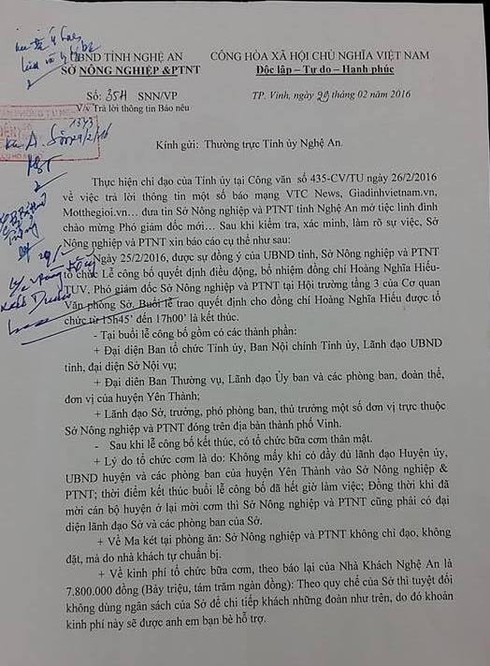 UBND TỈNH NGHỆ AN CỘNG HÒA XÃ HỘI CHỦ NGHĨA VIỆT NAM
SỞ NÔNG NGHIỆP &PTNT Độc lập – Tự do – Hạnh phúc
Số: 354 SNN/VP TP. Vinh, ngày 29 tháng 02 năm 2016
V/v Trả lời thông tin Báo nêu
1373
29/2/16
Kính gửi: Thường trực Tỉnh ủy Nghệ An.
Thực hiện chỉ đạo của Tỉnh ủy tại Công văn số 435-CV/TU ngày 26/2/2016
về việc trả lời thông tin một số báo mạng VTC News, Giadinhvietnam.vn,
Motthegioi.vn… đưa tin Sở Nông nghiệp và PTNT tỉnh Nghệ An mở tiệc linh đình
chào mừng Phó giám đốc mới… Sau khi kiểm tra, xác minh, làm rõ sự việc, Sở
Nông nghiệp và PTNT xin báo cáo cụ thể như sau:
Ngày 25/2/2016, được sự đồng ý của UBND tỉnh, Sở Nông nghiệp và PTNT
tổ chức Lễ công bố quyết định điều động, bổ nhiệm đồng chí Hoàng Nghĩa Hiếu-
TUV, Phó giám đốc Sở Nông nghiệp và PTNT tại Hội trường tầng 3 của Cơ quan
Văn phòng Sở. Buổi lễ trao quyết định cho đồng chí Hoàng Nghĩa Hiếu được tổ
chức từ 15h45' đến 17h00' là kết thúc.
- Tại buổi lễ công bố gồm có các thành phần:
+ Đại diện Ban tổ chức Tỉnh ủy, Ban Nội chính Tỉnh ủy, Lãnh đạo UBND
tỉnh, đại diện Sở Nội vụ;
+ Đại diên Ban Thường vụ, Lãnh đạo Ủy ban và các phòng ban, đoàn thể,
đơn vị của huyện Yên Thành;
+ Lãnh đạo Sở, trưởng, phó phòng ban, thủ trưởng một số đơn vị trực thuộc
Sở Nông nghiệp và PTNT đóng trên địa bàn thành phố Vinh.
- Sau khi lễ công bố kết thúc, có tổ chức bữa cơm thân mật.
+ Lý do tổ chức cơm là do: Không mấy khi có đầy đủ lãnh đạo Huyện ủy,
UBND huyện và các phòng ban của huyện Yên Thành vào Sở Nông nghiệp &
PTNT; thời điểm kết thúc buổi lễ công bố đã hết giờ làm việc; Đồng thời khi đã
mời cán bộ huyện ở lại mời cơm thì Sở Nông nghiệp và PTNT cũng phải có đại
diện lãnh đạo Sở và các phòng ban của Sở.
+ Về Ma két tại phòng ăn: Sở Nông nghiệp và PTNT không chỉ đạo, không
đặt, mà do nhà khách tự chuẩn bị.
+ Về kinh phí tổ chức bữa cơm, theo báo lại của Nhà Khách Nghệ An là
7.800.000 đồng (Bảy triệu, tám trăm ngàn đồng): Theo quy chế của Sở thì tuyệt đối
không dùng ngân sách của Sở để chi tiếp khách những đoàn như trên, do đó khoản
kinh phí này sẽ được anh em bạn bè hỗ trợ.